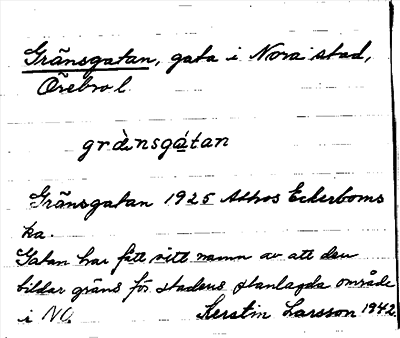 Gränsgatan, gata i Nora stad,
Örebro l.
grä̀nsgátan
Gränsgatan 1925 Athos Eckerboms
ka.
Gatan har fått sitt namn av att den
bildar gräns för stadens stanlagda område
i NO. Kerstin Larsson 1942.